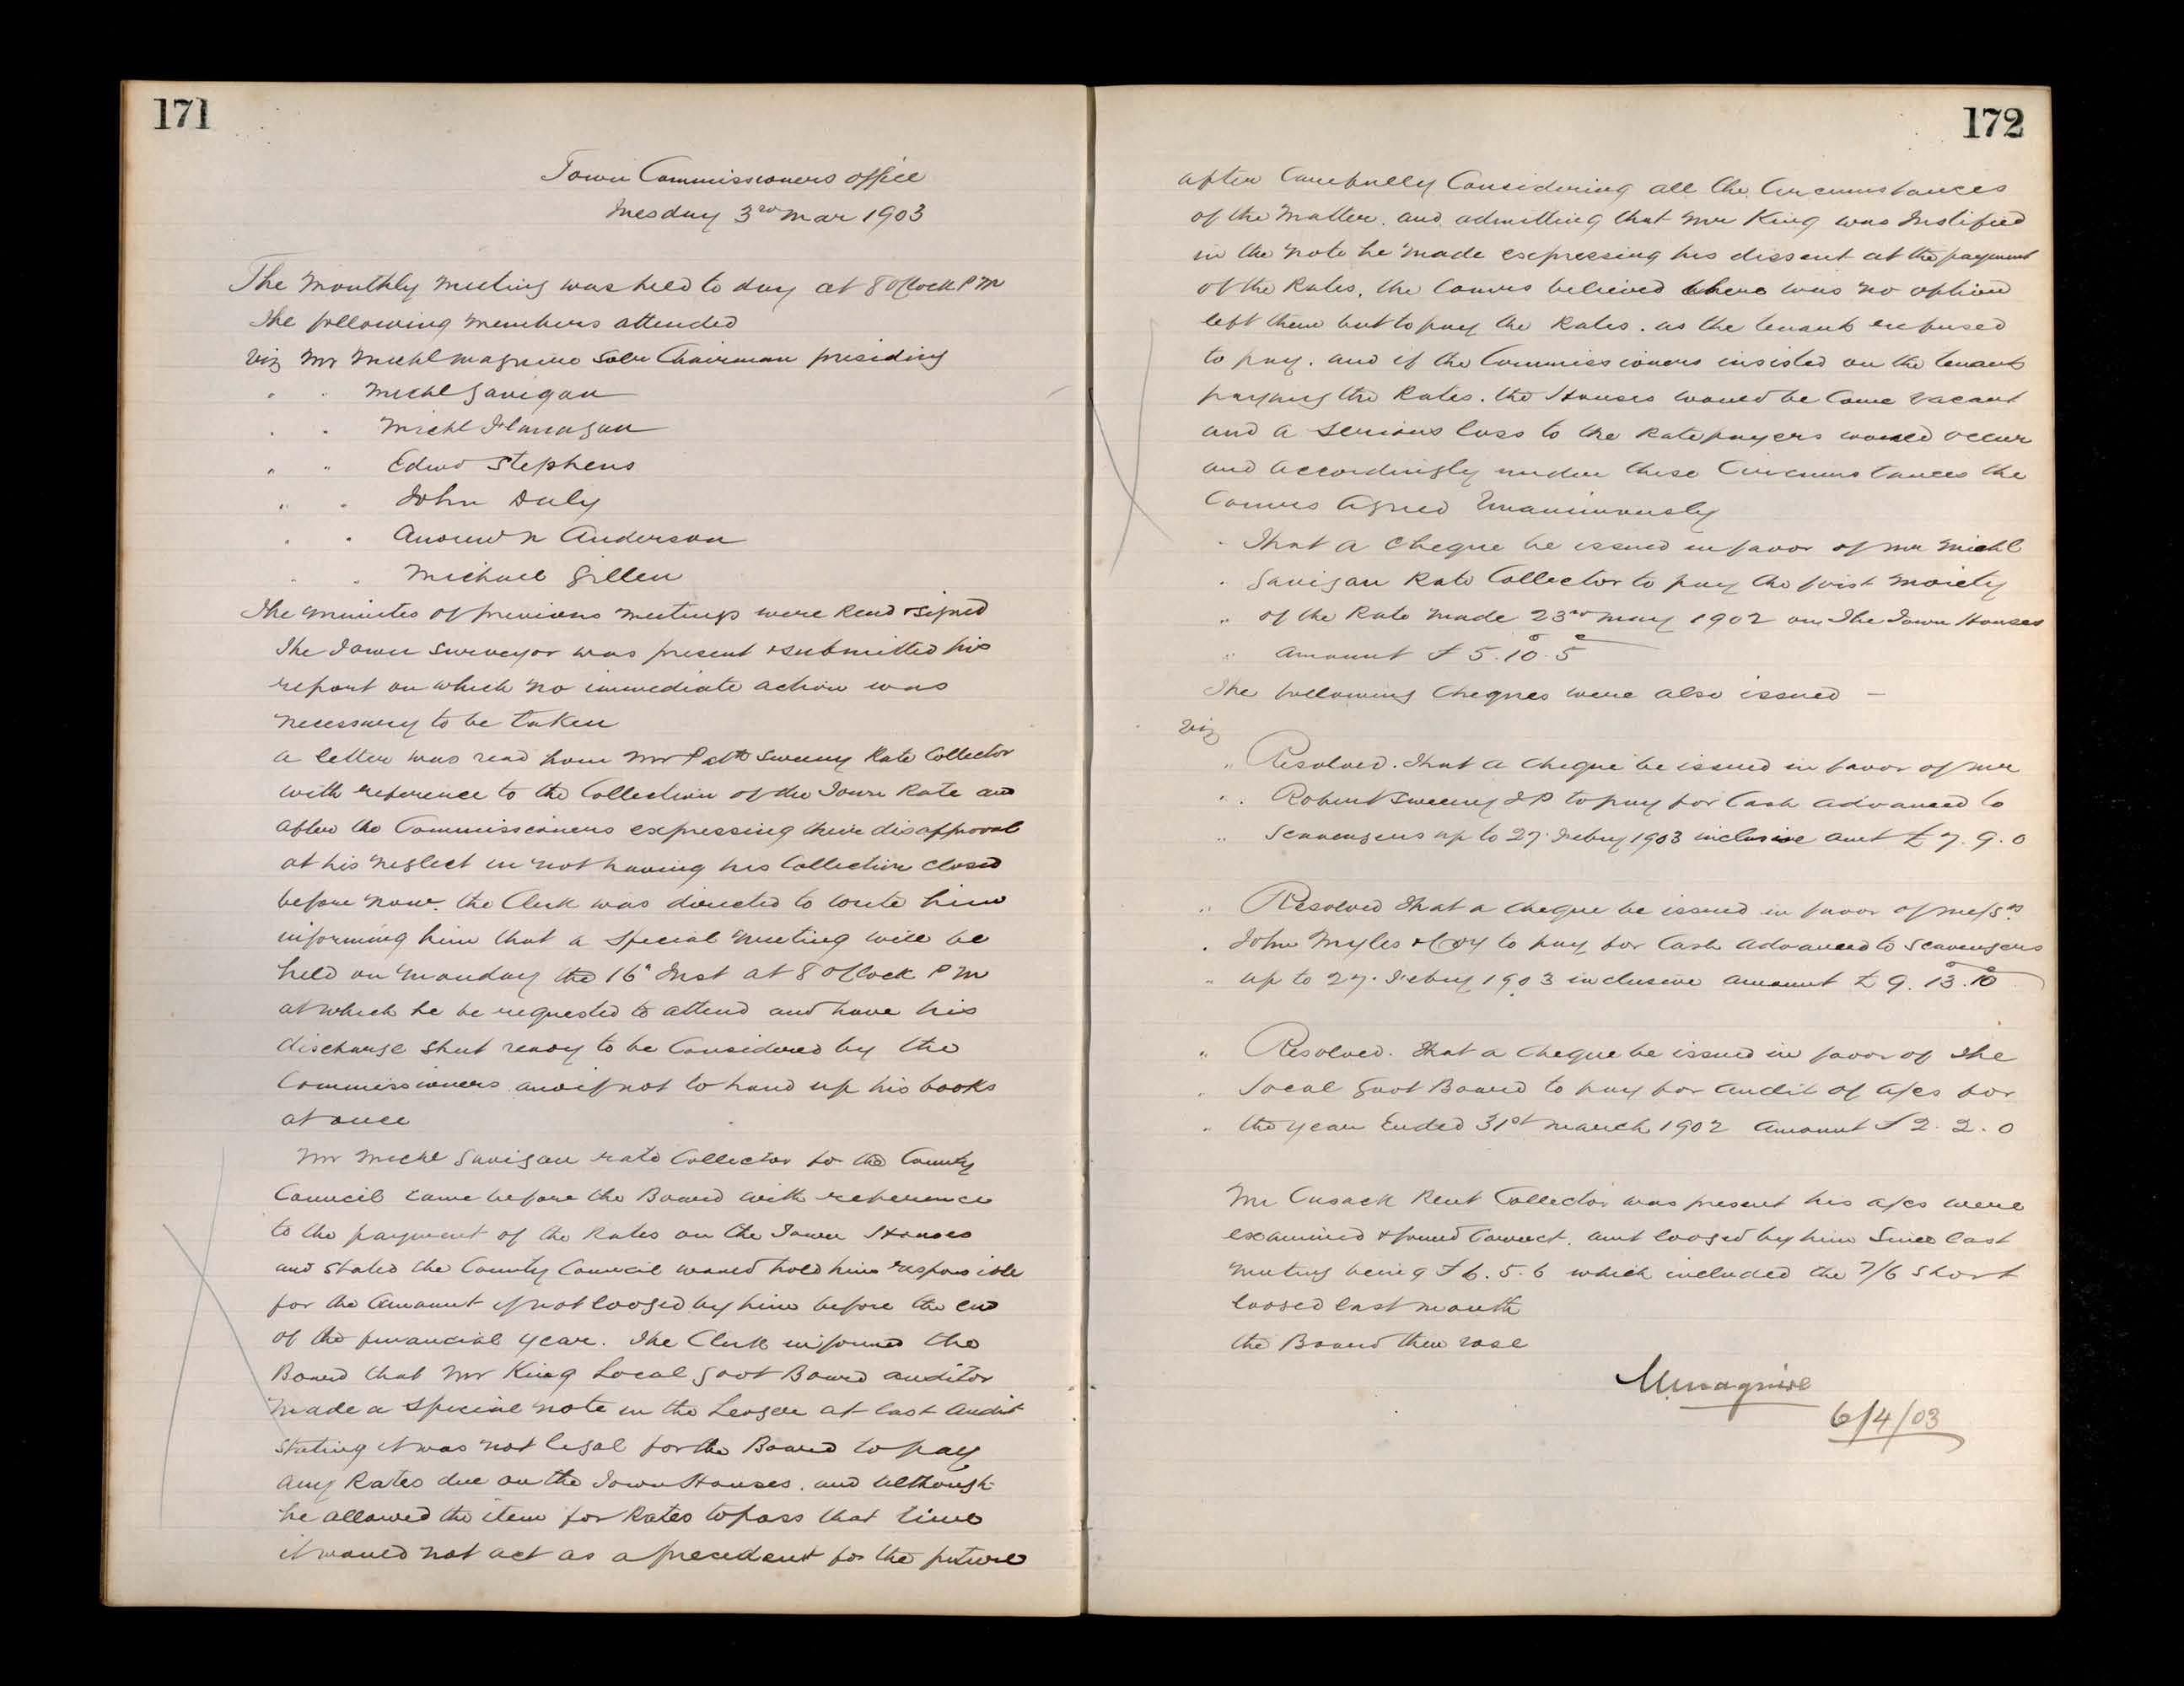 171
Town Commissioners office
Tuesday 3rd Mar 1903
The Monthly Meeting was held to day at 8 OClock P M
The following Members attended
Viz Mr Michl Maguire Solr Chairman presiding
" " Michl Gavigan
" " Michl Flanagan
" " Edwd Stephens
" " John Daly
" " Andrew N Anderson
" " Michael Gillen
The Minutes of previous Meetings were Read & signed
The Town Surveyor was present & submitted his
report on which no immediate action was
necessary to be taken
a letter was read from Mr Patk Sweeny Rate Collector
with reference to the Collection of the Town Rate and
after the Commissioners expressing their disapproval
at his neglect in not having his Collection closed
before now. the Clerk was directed to write him
informing him that a Special Meeting will be
held on Monday the 16" Inst at 8 OClock P M
at which he be requested to attend and have his
discharge sheet ready to be Considered by the
Commissioners and if not to hand up his books
at once
Mr Michl Gavigan rate Collector for the County
Council came before the Board with reference
to the payment of the Rates on the Town Houses
and stated the County Council would hold him responsible
for the Amount if not lodged by him before the end
of the financial year. The Clerk informed the
Board that Mr King Local Govt Board auditor
made a Special note in the Ledger at last Audit
stating it was not legal for the Board to pay
any Rates due on the Town Houses. and although
he allowed the item for Rates to pass that time
it would not act as a precedent for the future
172
after Carefully Considering all the Circumstances
of the Matter. and admitting that Mr King was Justified
in the note he made expressing his dissent at the payment
of the Rates, the Comrs believed there was no option
left them but to pay the Rates. as the tenants refused
to pay. and if the Commissioners insisted on the tenants
paying the Rates. the Houses would be Come vacant
and a serious loss to the Ratepayers would occur
and accordingly under these Circumstances the
Comrs Agreed Unanimously
" That a Cheque be issued in favor of Mr Michl
" Gavigan Rate Collector to pay the first Moiety
" of the Rate Made 23rd May 1902 on The Town Houses
" Amount £ 5. 10. 5
The following Cheques were also issued —
Viz
" Resolved. That a Cheque be issued in favor of Mr
" Robert Sweeny J P to pay for Cash advanced to
" Scavengers up to 27. Febry 1903 inclusive amt £ 7. 9. 0
" Resolved That a Cheque be issued in favor of Messrs
" John Myles & Coy to pay for Cash advanced to Scavengers
" up to 27. Febry 1903 inclusive amount £ 9. 13. 10
" Resolved. That a Cheque be issued in favor of The
" Local Govt Board to pay for Audit of A/cs for
" the year Ended 31st March 1902 Amount £ 2. 2. 0
Mr Cusack Rent Collector was present his a/cs were
examined & found Correct. amt lodged by him Since last
Meeting being £ 6. 5. 6 which included the 7/6 Short
lodged last month
the Board then rose
M Maguire
6/4/03